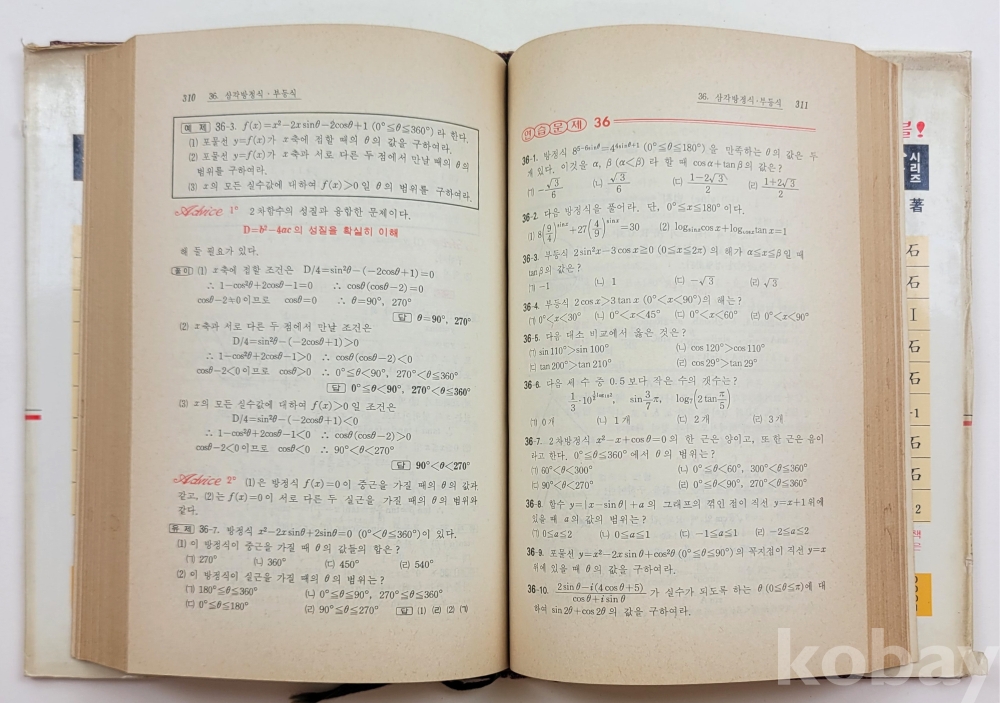 310 36. 삼각방정식·부등식
예 제 36-3. f(x)=x²-2x sinθ-2cosθ+1 (0°≦θ≦360°) 라 한다.
(1) 포물선 y=f(x)가 x축에 접할 때의 θ의 값을 구하여라.
(2) 포물선 y=f(x)가 x축과 서로 다른 두 점에서 만날 때의 θ의
범위를 구하여라.
(3) x의 모든 실수값에 대하여 f(x)>0일 θ의 범위를 구하여라.
Advice 1° 2차함수의 성질과 융합한 문제이다.
D=b²-4ac의 성질을 확실히 이해
해 둘 필요가 있다.
풀이 (1) x축에 접할 조건은 D/4=sin²θ-(-2cosθ+1)=0
∴ 1-cos²θ+2cosθ-1=0 ∴ cosθ(cosθ-2)=0
cosθ-2≠0이므로 cosθ=0 ∴ θ=90°, 270°
답 θ=90°, 270°
(2) x축과 서로 다른 두 점에서 만날 조건은
D/4=sin²θ-(-2cosθ+1)>0
∴ 1-cos²θ+2cosθ-1>0 ∴ cosθ(cosθ-2)<0
cosθ-2<0이므로 cosθ>0 ∴ 0°≦θ<90°, 270°<θ≦360°
답 0°≦θ<90°, 270°<θ≦360°
(3) x의 모든 실수값에 대하여 f(x)>0일 조건은
D/4=sin²θ-(-2cosθ+1)<0
∴ 1-cos²θ+2cosθ-1<0 ∴ cosθ(cosθ-2)>0
cosθ-2<0이므로 cosθ<0 ∴ 90°<θ<270°
답 90°<θ<270°
Advice 2° (1)은 방정식 f(x)=0이 중근을 가질 때의 θ의 값과
같고, (2)는 f(x)=0이 서로 다른 두 실근을 가질 때의 θ의 범위와
같다.
유 제 36-7. 방정식 x²-2x sinθ+2sinθ=0 (0°<θ≦360°)이 있다.
(1) 이 방정식이 중근을 가질 때 θ의 값들의 합은?
(ㄱ) 270° (ㄴ) 360° (ㄷ) 450° (ㄹ) 540°
(2) 이 방정식이 실근을 가질 때의 θ의 범위는?
(ㄱ) 180°≦θ≦360° (ㄴ) 0°≦θ≦90°, 270°≦θ≦360°
(ㄷ) 0°≦θ≦180° (ㄹ) 90°≦θ≦270° 답 (1) (ㄹ) (2) (ㄱ)
36. 삼각방정식·부등식 311
연습문제 36
36-1. 방정식 8^(5-6sinθ)=4^(4sinθ+1) (0°≦θ≦180°)을 만족하는 θ의 값은 두
개 있다. 이것을 α, β (α<β)라 할 때 cosα+tanβ의 값은?
(ㄱ) -√3/6 (ㄴ) √3/6 (ㄷ) (1-2√3)/2 (ㄹ) (1+2√3)/2
36-2. 다음 방정식을 풀어라. 단, 0°≦x≦180°이다.
(1) 8(9/4)^sinx+27(4/9)^sinx=30 (2) log_sinx cosx+log_cosx tanx=1
36-3. 부등식 2sin²x-3cosx≧0 (0≦x≦2π)의 해가 α≦x≦β일 때
tanβ의 값은?
(ㄱ) -1 (ㄴ) 1 (ㄷ) -√3 (ㄹ) √3
36-4. 부등식 2cosx>3tanx (0°<x<90°)의 해는?
(ㄱ) 0°<x<30° (ㄴ) 0°<x<45° (ㄷ) 0°<x<60° (ㄹ) 0°<x<90°
36-5. 다음 대소 비교에서 옳은 것은?
(ㄱ) sin110°>sin100° (ㄴ) cos120°>cos110°
(ㄷ) tan200°>tan210° (ㄹ) cos29°>tan29°
36-6. 다음 세 수 중 0.5보다 작은 수의 갯수는?
sin 3/7 π, log₇(2tan π/5)
(ㄱ) 0개 (ㄴ) 1개 (ㄷ) 2개 (ㄹ) 3개
36-7. 2차방정식 x²-x+cosθ=0의 한 근은 양이고, 또 한 근은 음이
라고 한다. 0°≦θ≦360°에서 θ의 범위는?
(ㄱ) 60°<θ<300° (ㄴ) 0°≦θ<60°, 300°<θ≦360°
(ㄷ) 90°<θ<270° (ㄹ) 0°≦θ<90°, 270°<θ≦360°
36-8. 함수 y=|x-sinθ|+a의 그래프의 꺾인 점이 직선 y=x+1위에
있을 때 a의 값의 범위는?
(ㄱ) 0≦a≦2 (ㄴ) 0≦a≦1 (ㄷ) -1≦a≦1 (ㄹ) -2≦a≦2
36-9. 포물선 y=x²-2x sinθ+cos²θ (0°≦θ≦90°)의 꼭지점이 직선 y=x
위에 있을 때 θ의 값을 구하여라.
36-10. (2sinθ-i(4cosθ+5))/(cosθ+i sinθ) 가 실수가 되도록 하는 θ (0≦θ≦π)에 대
하여 sin2θ+cos2θ의 값을 구하여라.
시리즈
著
石
石
I
石
石
-1
石
2
kobay